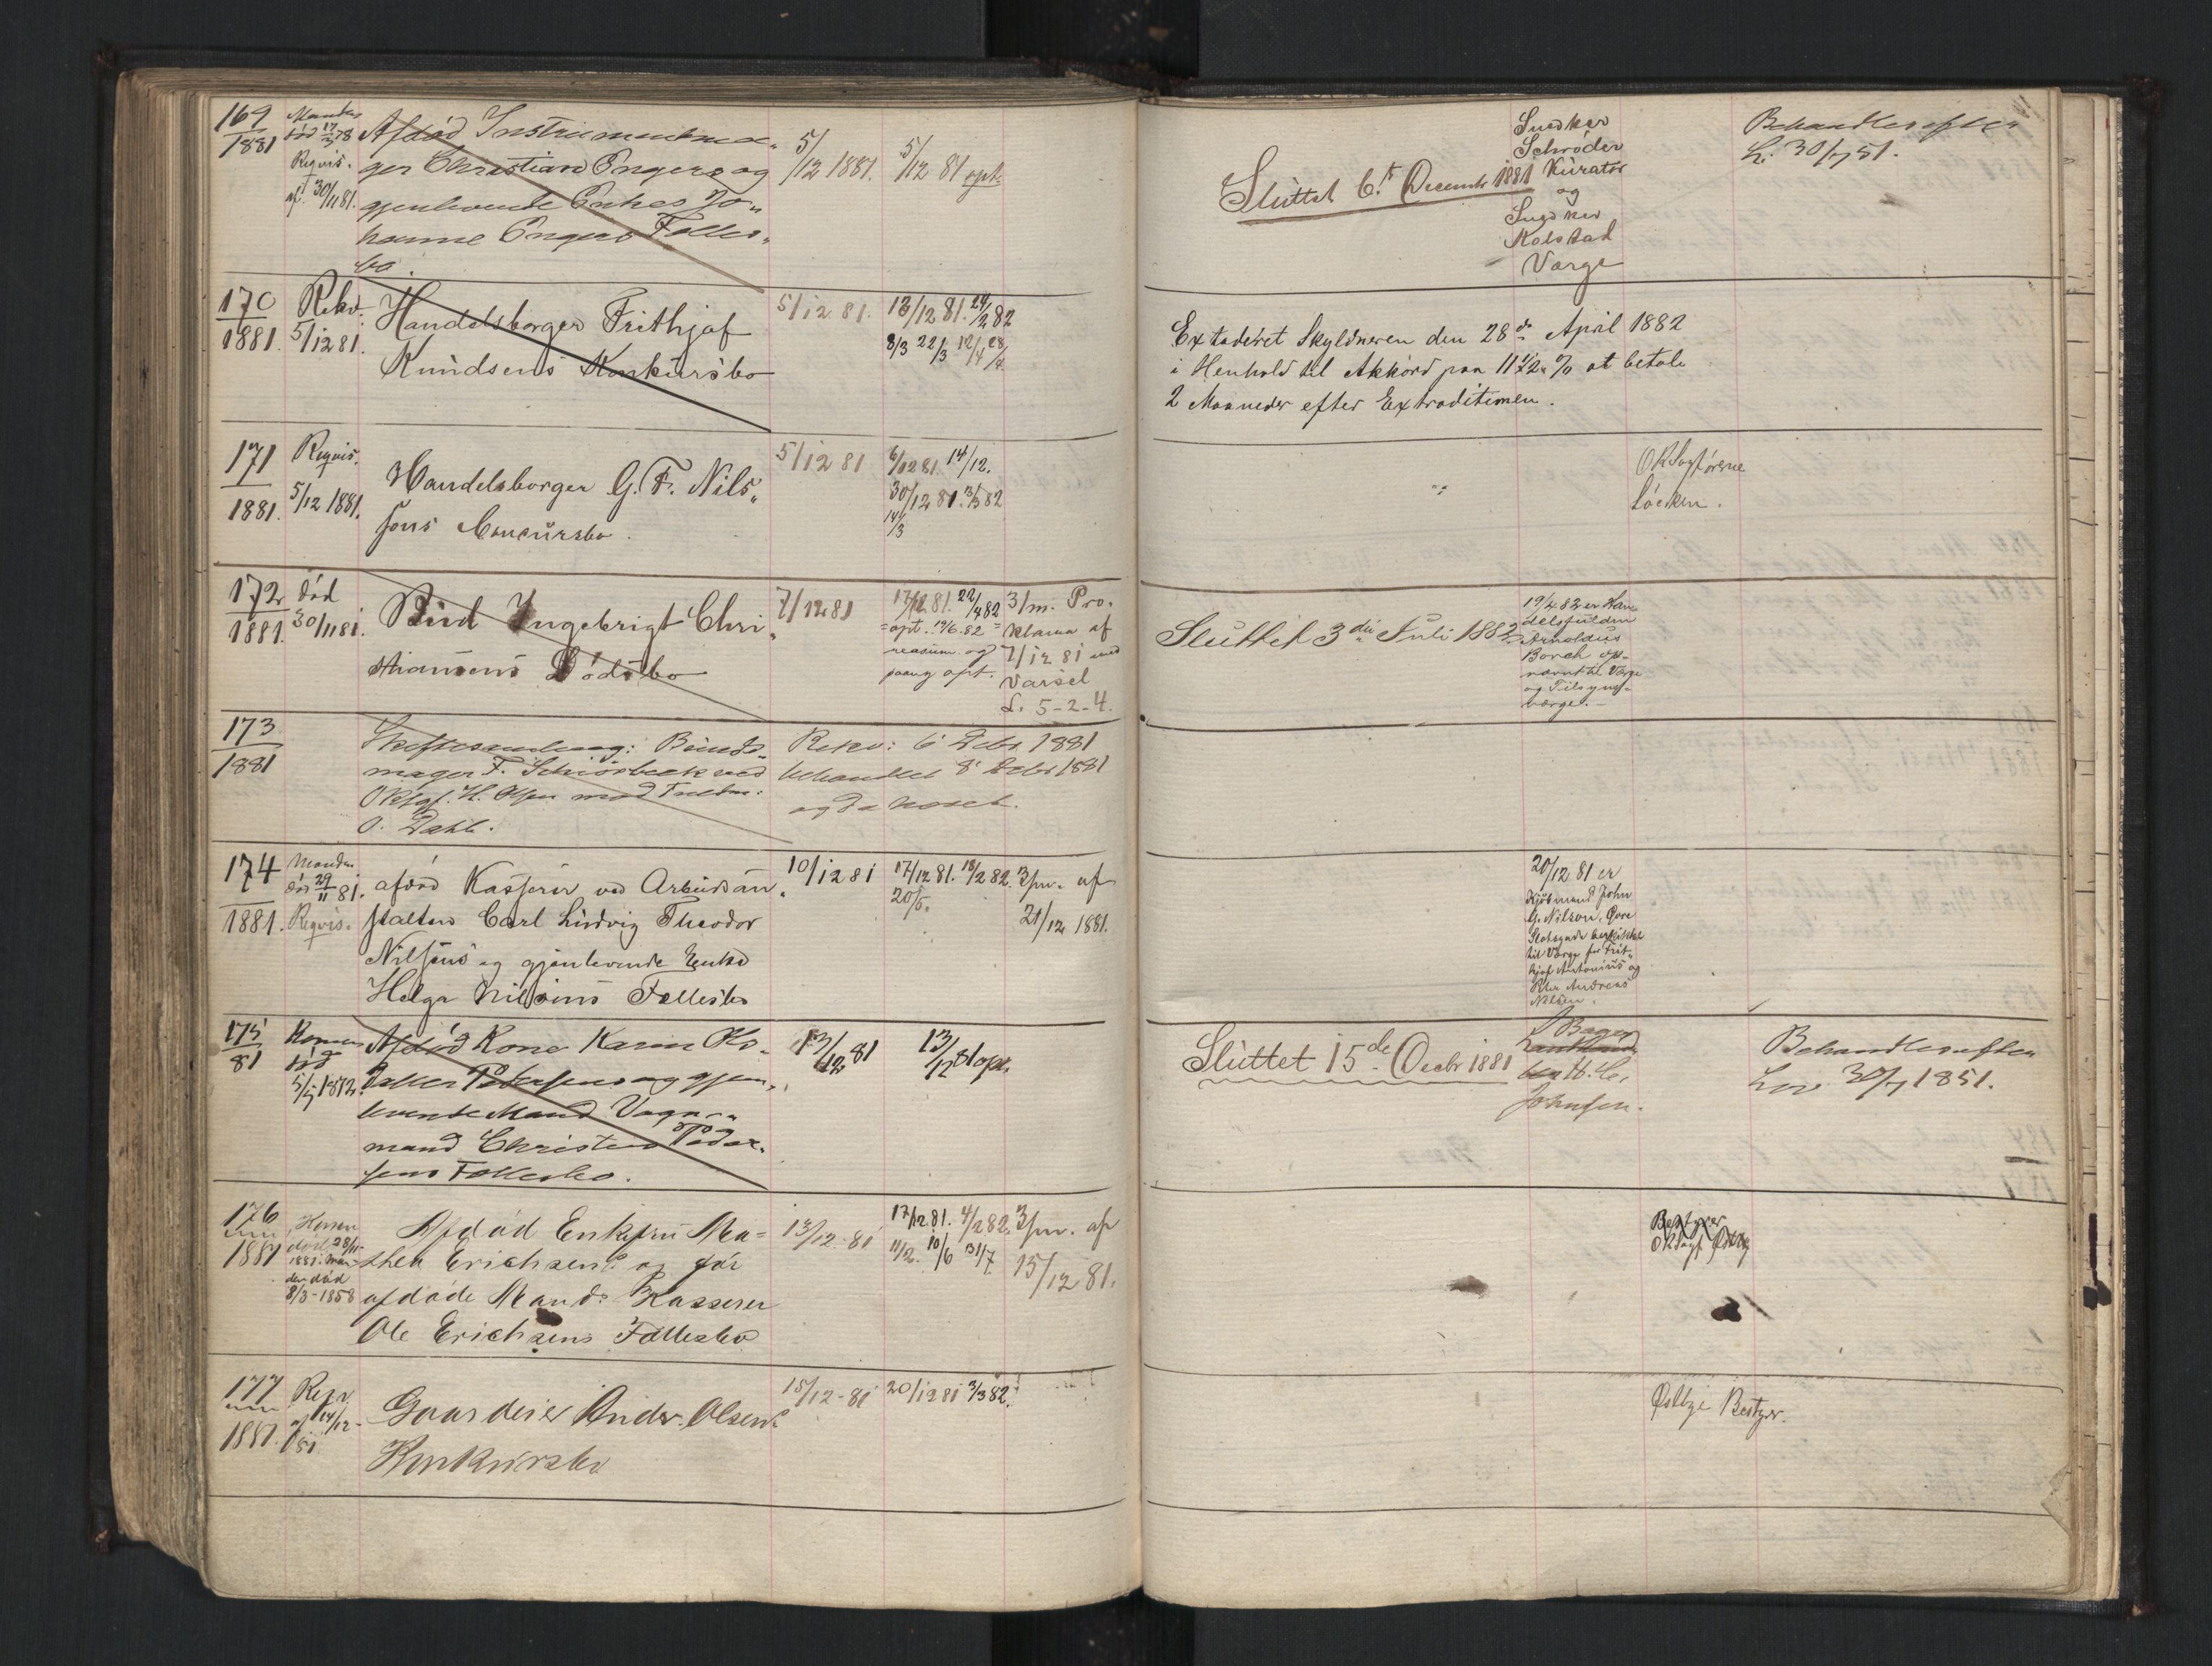 169
1881
Manden
død 17/3 78
Reqvis.
af 30/11 81.
Afdød Instrumentma„
ger Christian Engers og
gjenlevende Enkes Jo„
hanne Engers Fælles„
bo.
5/12 1881.
5/12 81 opt.
Sluttet 6.t December 1881
Snedker
Schrøder
Kurator
og
Snedker
Kolstad
Værge
Behandles efter
L. 30/7 51.
170
1881
Rekv.
5/12 81.
Handelsborger Frithjof
Knudsens Konkursbo
5/12 81.
13/12 81. 24/2 82
8/3 22/3 12/4 28/4.
Extraderet Skyldneren den 28de April 1882
i Henhold til Akkord paa 11 1/2 % at betale
2 Maaneder efter Extraditionen.
171
1881.
Reqvis.
5/12 1881.
Handelsborger G. F. Nils„
sons Concursbo.
5/12 81
6/12 81. 14/12.
30/12 81. 13/3 82
14/3
ORSagførerne
Löcken.
172
1881.
død
30/11 81.
Bud Ingebrigt Chri„
stiansens Dødsbo
7/12 81
17/12 81. 22/4 82
=opt. 19/6. 82=
reasum. og
paany opt.
3/m. Pro.
klama af
7/12 81 med
Varsel
L. 5-2-4.
Sluttet 3die Juli 1882
19/4 82 er Han
delsfuldm
Arnoldus
Borch op-
nævnt til Værge
og Tilsyns-
værge.
173
1881
Skiftesamling: Bundt„
mager F. Schiørbeck ved
ORSagf. H. Olsen mod Fuldm:
O. Dahl.
Rekv: 6 Decbr. 1881
behandlet 8 Decbr 1881
og da hævet.
174
1881.
Manden
død 29/11 81.
Reqvis.
afdød Kasserer ved Arbeidsan„
stalten Carl Ludvig Theodor
Nilsens og gjenlevende Enke
Helga Nilsens Fællesbo
10/12 81
17/12 81. 18/2 82.
20/5.
3/m. af
21/12 1881.
20/12 81 er
Kjøbmand John
G. Nilson, Øvre
Slotsgade beskikket
til Værge for Frit„
hjof Antonius og
Peter Andreas
Nilsen.
175
81
Konen
død
5/5 1872.
Afdød Kone Karen
Petersens og gjen„
levende Mand Vogn„
mand Christen Peder„
sens Fællesbo.
13/12 81
13/12 81 opt.
Sluttet 15de Decbr 1881
Bager
H. C.
Johnsen.
Behandles efter
Lov 30/7 1851.
176
1881
Konen
død 28/11
1881. Man
den død
8/3-1858
Afdød Enkefru Ma=
thea Erichsens og før
afdøde Mands Kasserer
Ole Erichsens Fællesbo
13/12 81
17/12 81. 4/2 82.
11/2. 10/6 31/7
3/m. af
15/12 81.
Bestyrer
ORSagf. Østbye
177
1881.
Reqv.
af 14/12-
81
Gaardeier Ander. Olsens
Konkursbo
15/12-81
20/12 81 2/3 82.
Østbye Bestyrer.